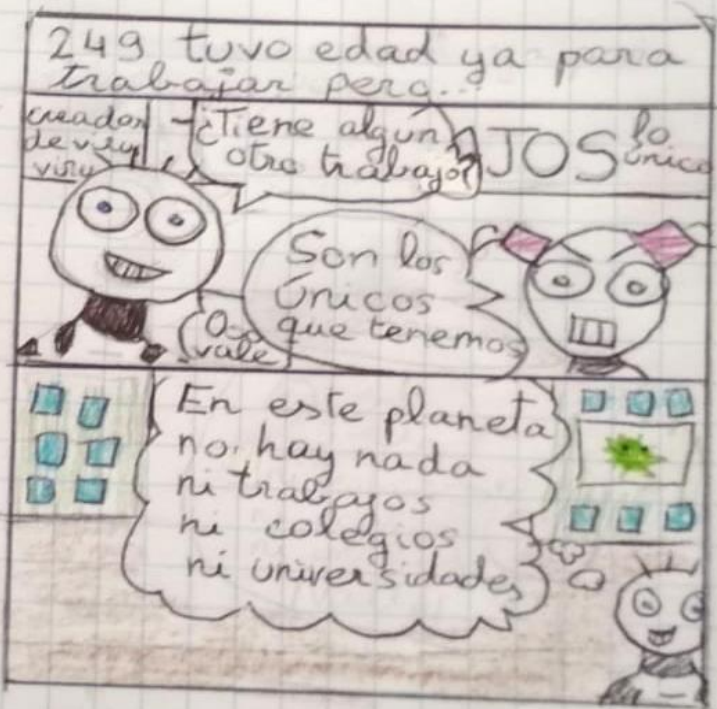 249 tuvo edad ya para
trabajar pero...
creador
de viru
viru
-¿Tiene algun
otro trabajo?
JOS lo
único
Son los
únicos
que tenemos
O
vale
En este planeta
no hay nada
ni trabajos
ni colegios
ni universidades